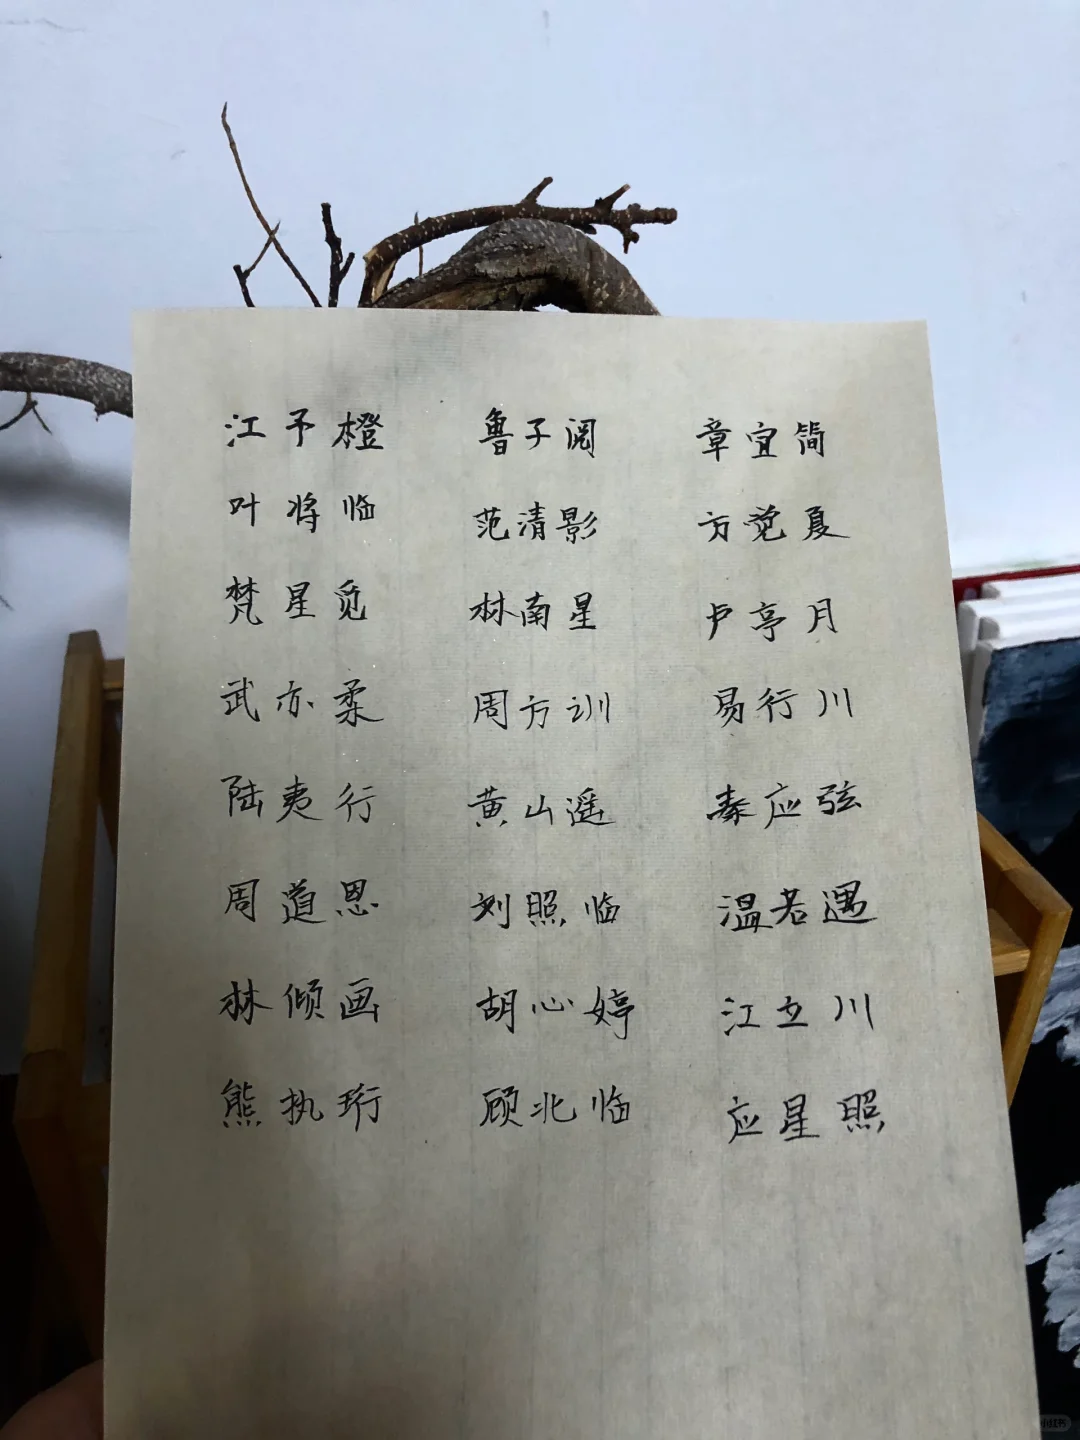 江予橙 鲁子阅 章宜简
叶将临 范清影 方觉夏
梵星觅 林南星 卢亭月
武亦柔 周方训 易行川
陆夷行 黄山遥 秦应弦
周道恩 刘照临 温若遇
林倾画 胡心婷 江立川
熊执珩 顾北临 应星照
小红书